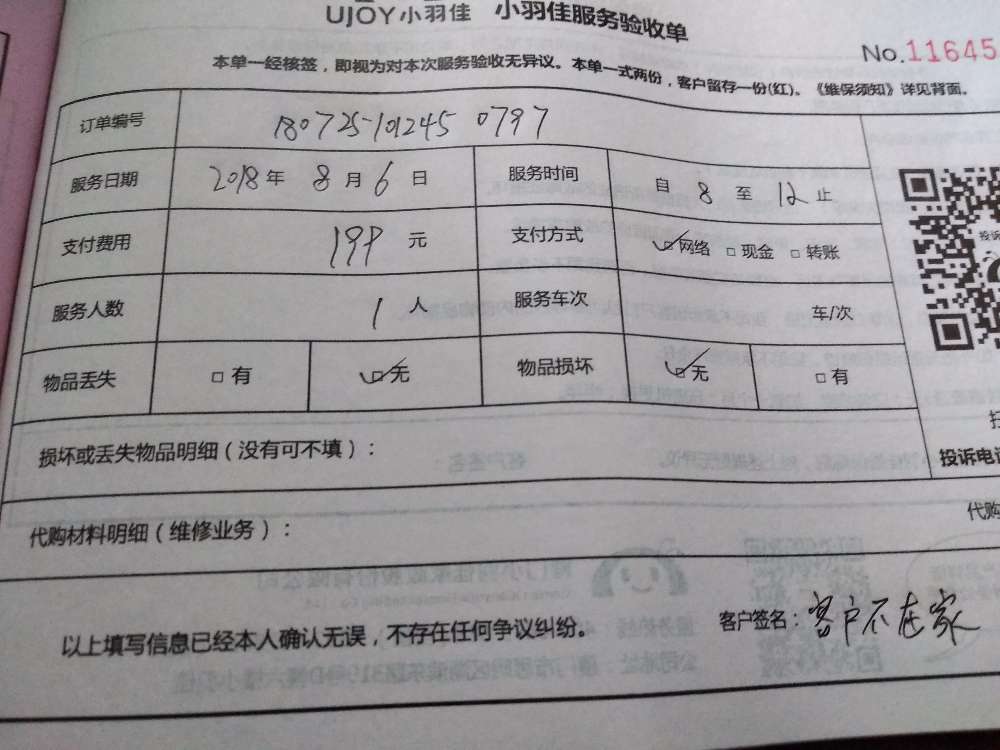 UJOY小羽佳 小羽佳服务验收单
No.11645
本单一经核签，即视为对本次服务验收无异议。本单一式两份，客户留存一份(红)。《维保须知》详见背面。
订单编号 180725-101245 0797
服务日期 2018年 8月6日 服务时间 自 8 至 12 止
支付费用 199 元 支付方式 ☑网络 □现金 □转账
服务人数 1 人 服务车次 车/次
物品丢失 □有 ☑无 物品损坏 ☑无 □有
损坏或丢失物品明细（没有可不填）：
投诉电
代购材料明细（维修业务）： 代购
以上填写信息已经本人确认无误，不存在任何争议纠纷。 客户签名：客户不在家